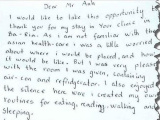 Dear Mr Anh
I would like to take the opportunity
thank you for my stay in Your clinic in
Ba-Ria. As I am not familiar with the
asian healthcare I was a little worried
about where I would be placed, and how
it would be like. But I was very pleased
the room I was given, containing
air-con and refridgerator. I also enjoyed
the silence here were I created my own
routines for eating, reading, walking and
sleeping.